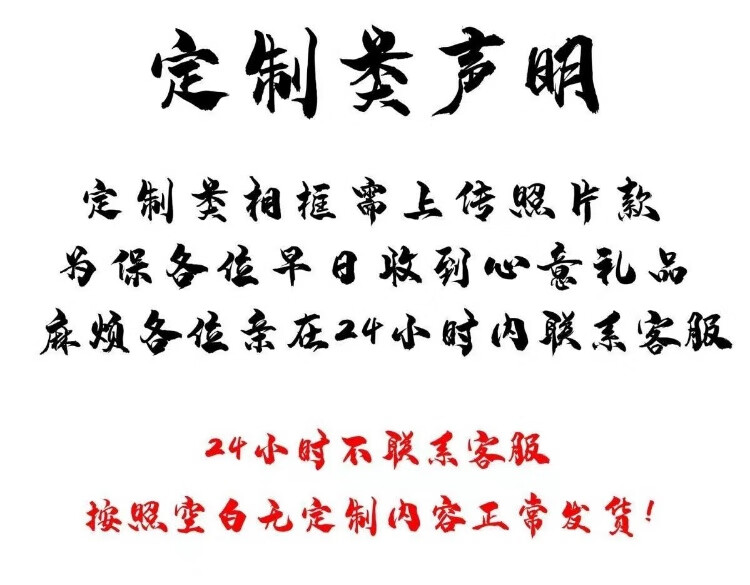 定制类声明
定制类相框需上传照片款
为保各位早日收到心意礼品
麻烦各位亲在24小时内联系客服
24小时不联系客服
按照空白无定制内容正常发货!